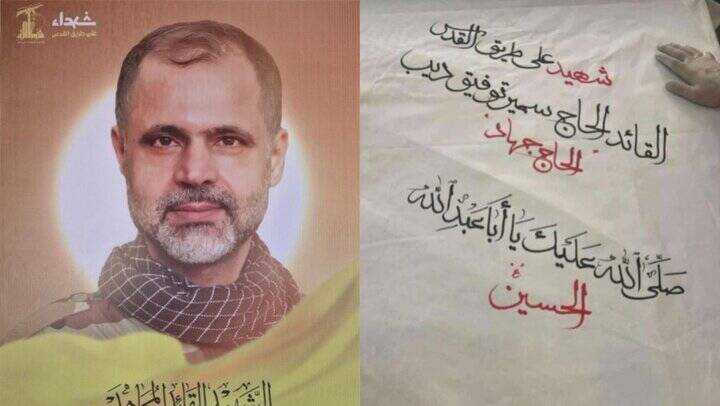 شهداء
على طريق القدس
الشهيد القائد المجاهد
شهيد على طريق القدس
القائد الحاج سمير توفيق ديب
الحاج جهاد
صلى الله عليك يا أبا عبد الله
الحسين